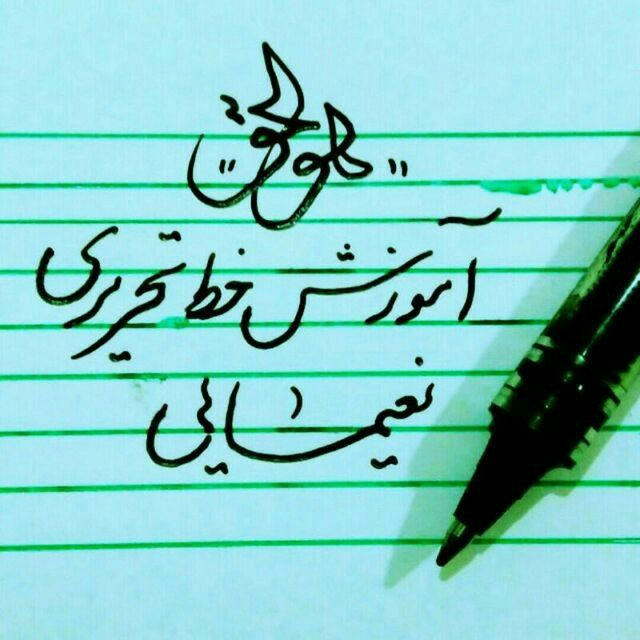 "هوالحق"
آموزش خط تحریری
نعیمایی